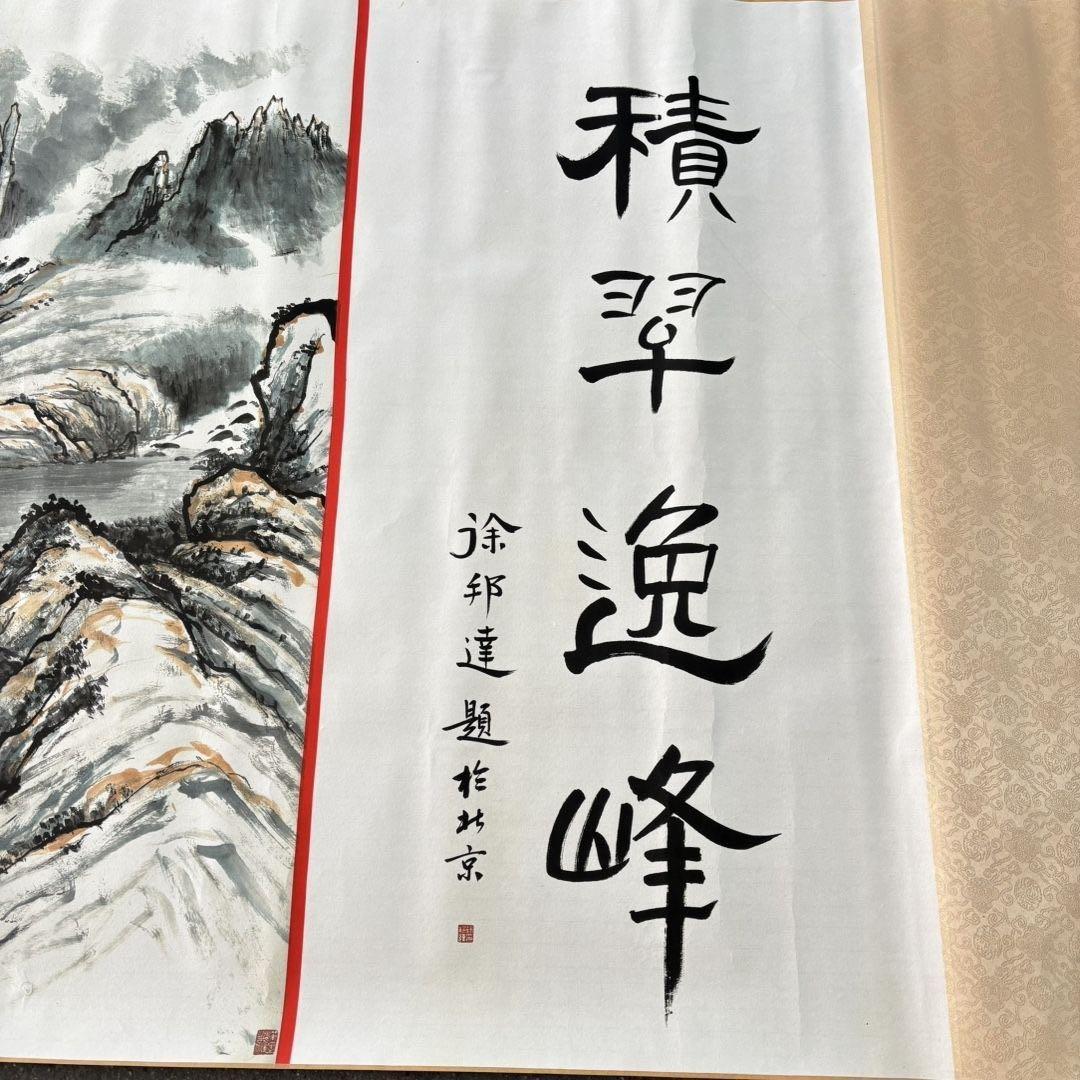 積翠逸峰
徐邦達題於北京